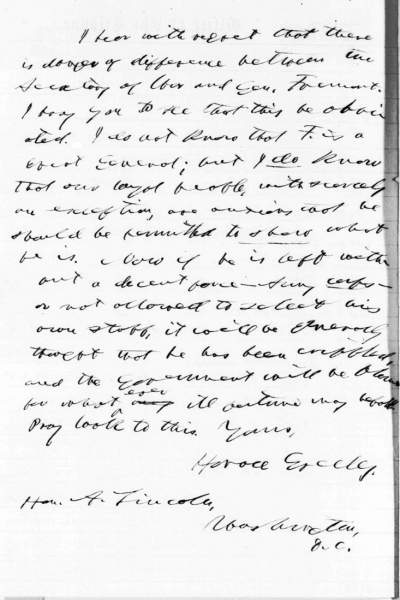 I hear with regret that there
is danger of difference between the
Secretary of War and Gen. Fremont.
I pray you to see that this be obvi-
ated. I do not know that F. is a
great General; but I do know
that our loyal people, with scarcely
an exception, are anxious that he
should be permitted to show what
he is. Now if he is left with-
out a decent force—Army corps—
or not allowed to select his
own staff, it will be generally
thought that he has been crippled,
and the Government will be blamed
for whatever ill fortune may befall.
Pray look to this. Yours,
Horace Greeley.
Hon. A. Lincoln,
Washington,
D.C.